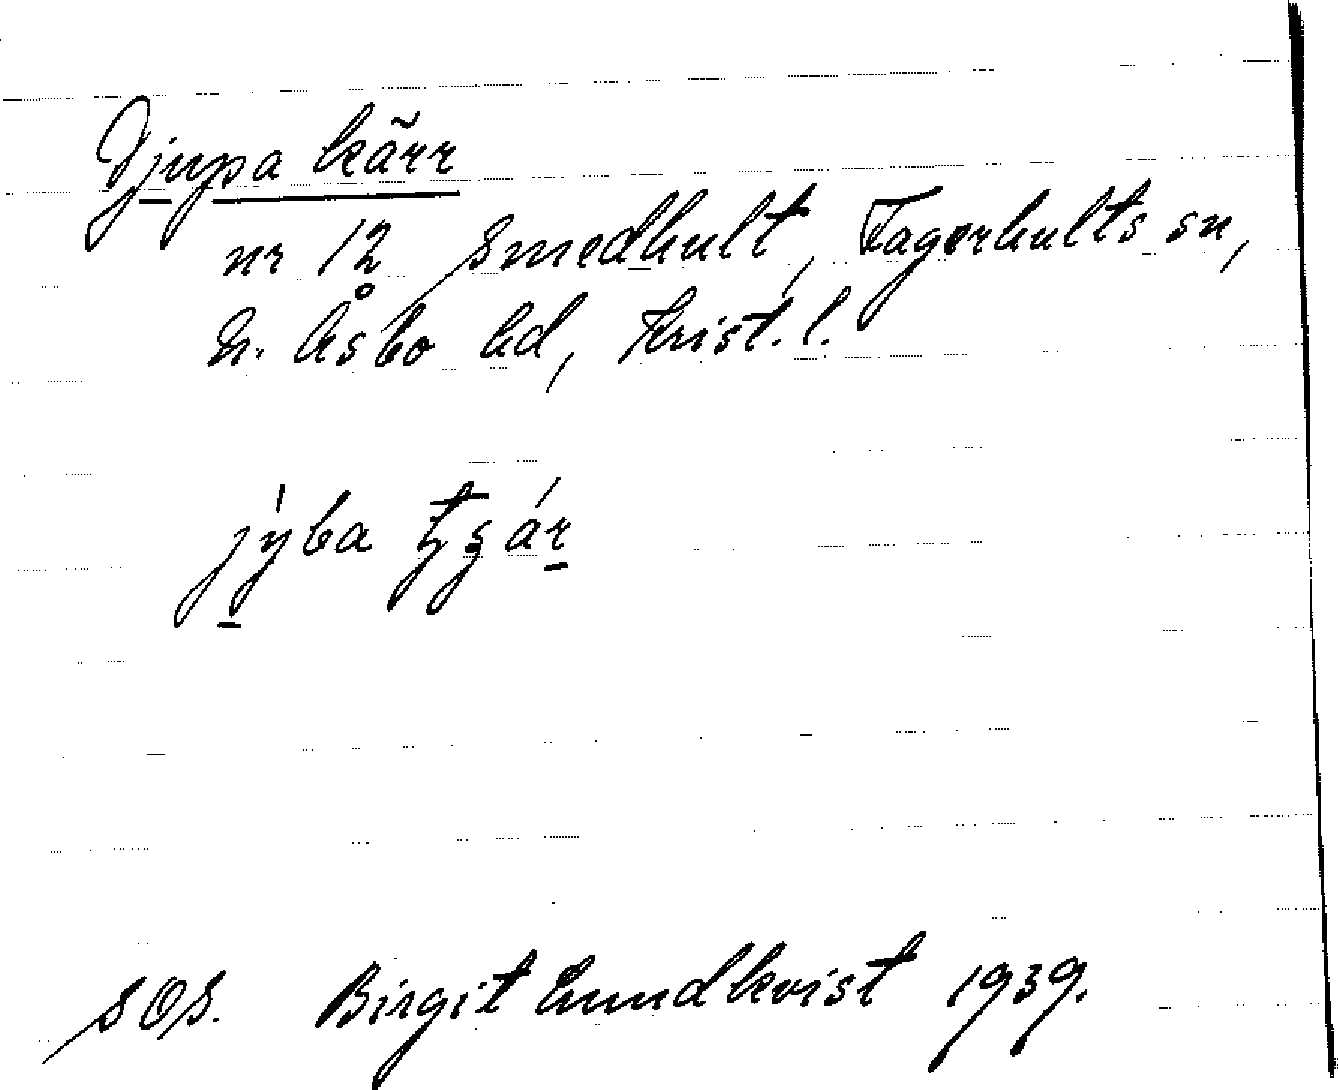 Djupa kärr
nr 12 Smedhult, Fagerhults sn,
N. Åsbo hd, Krist. l.
jýba
SOS. Birgit Lundkvist 1939.